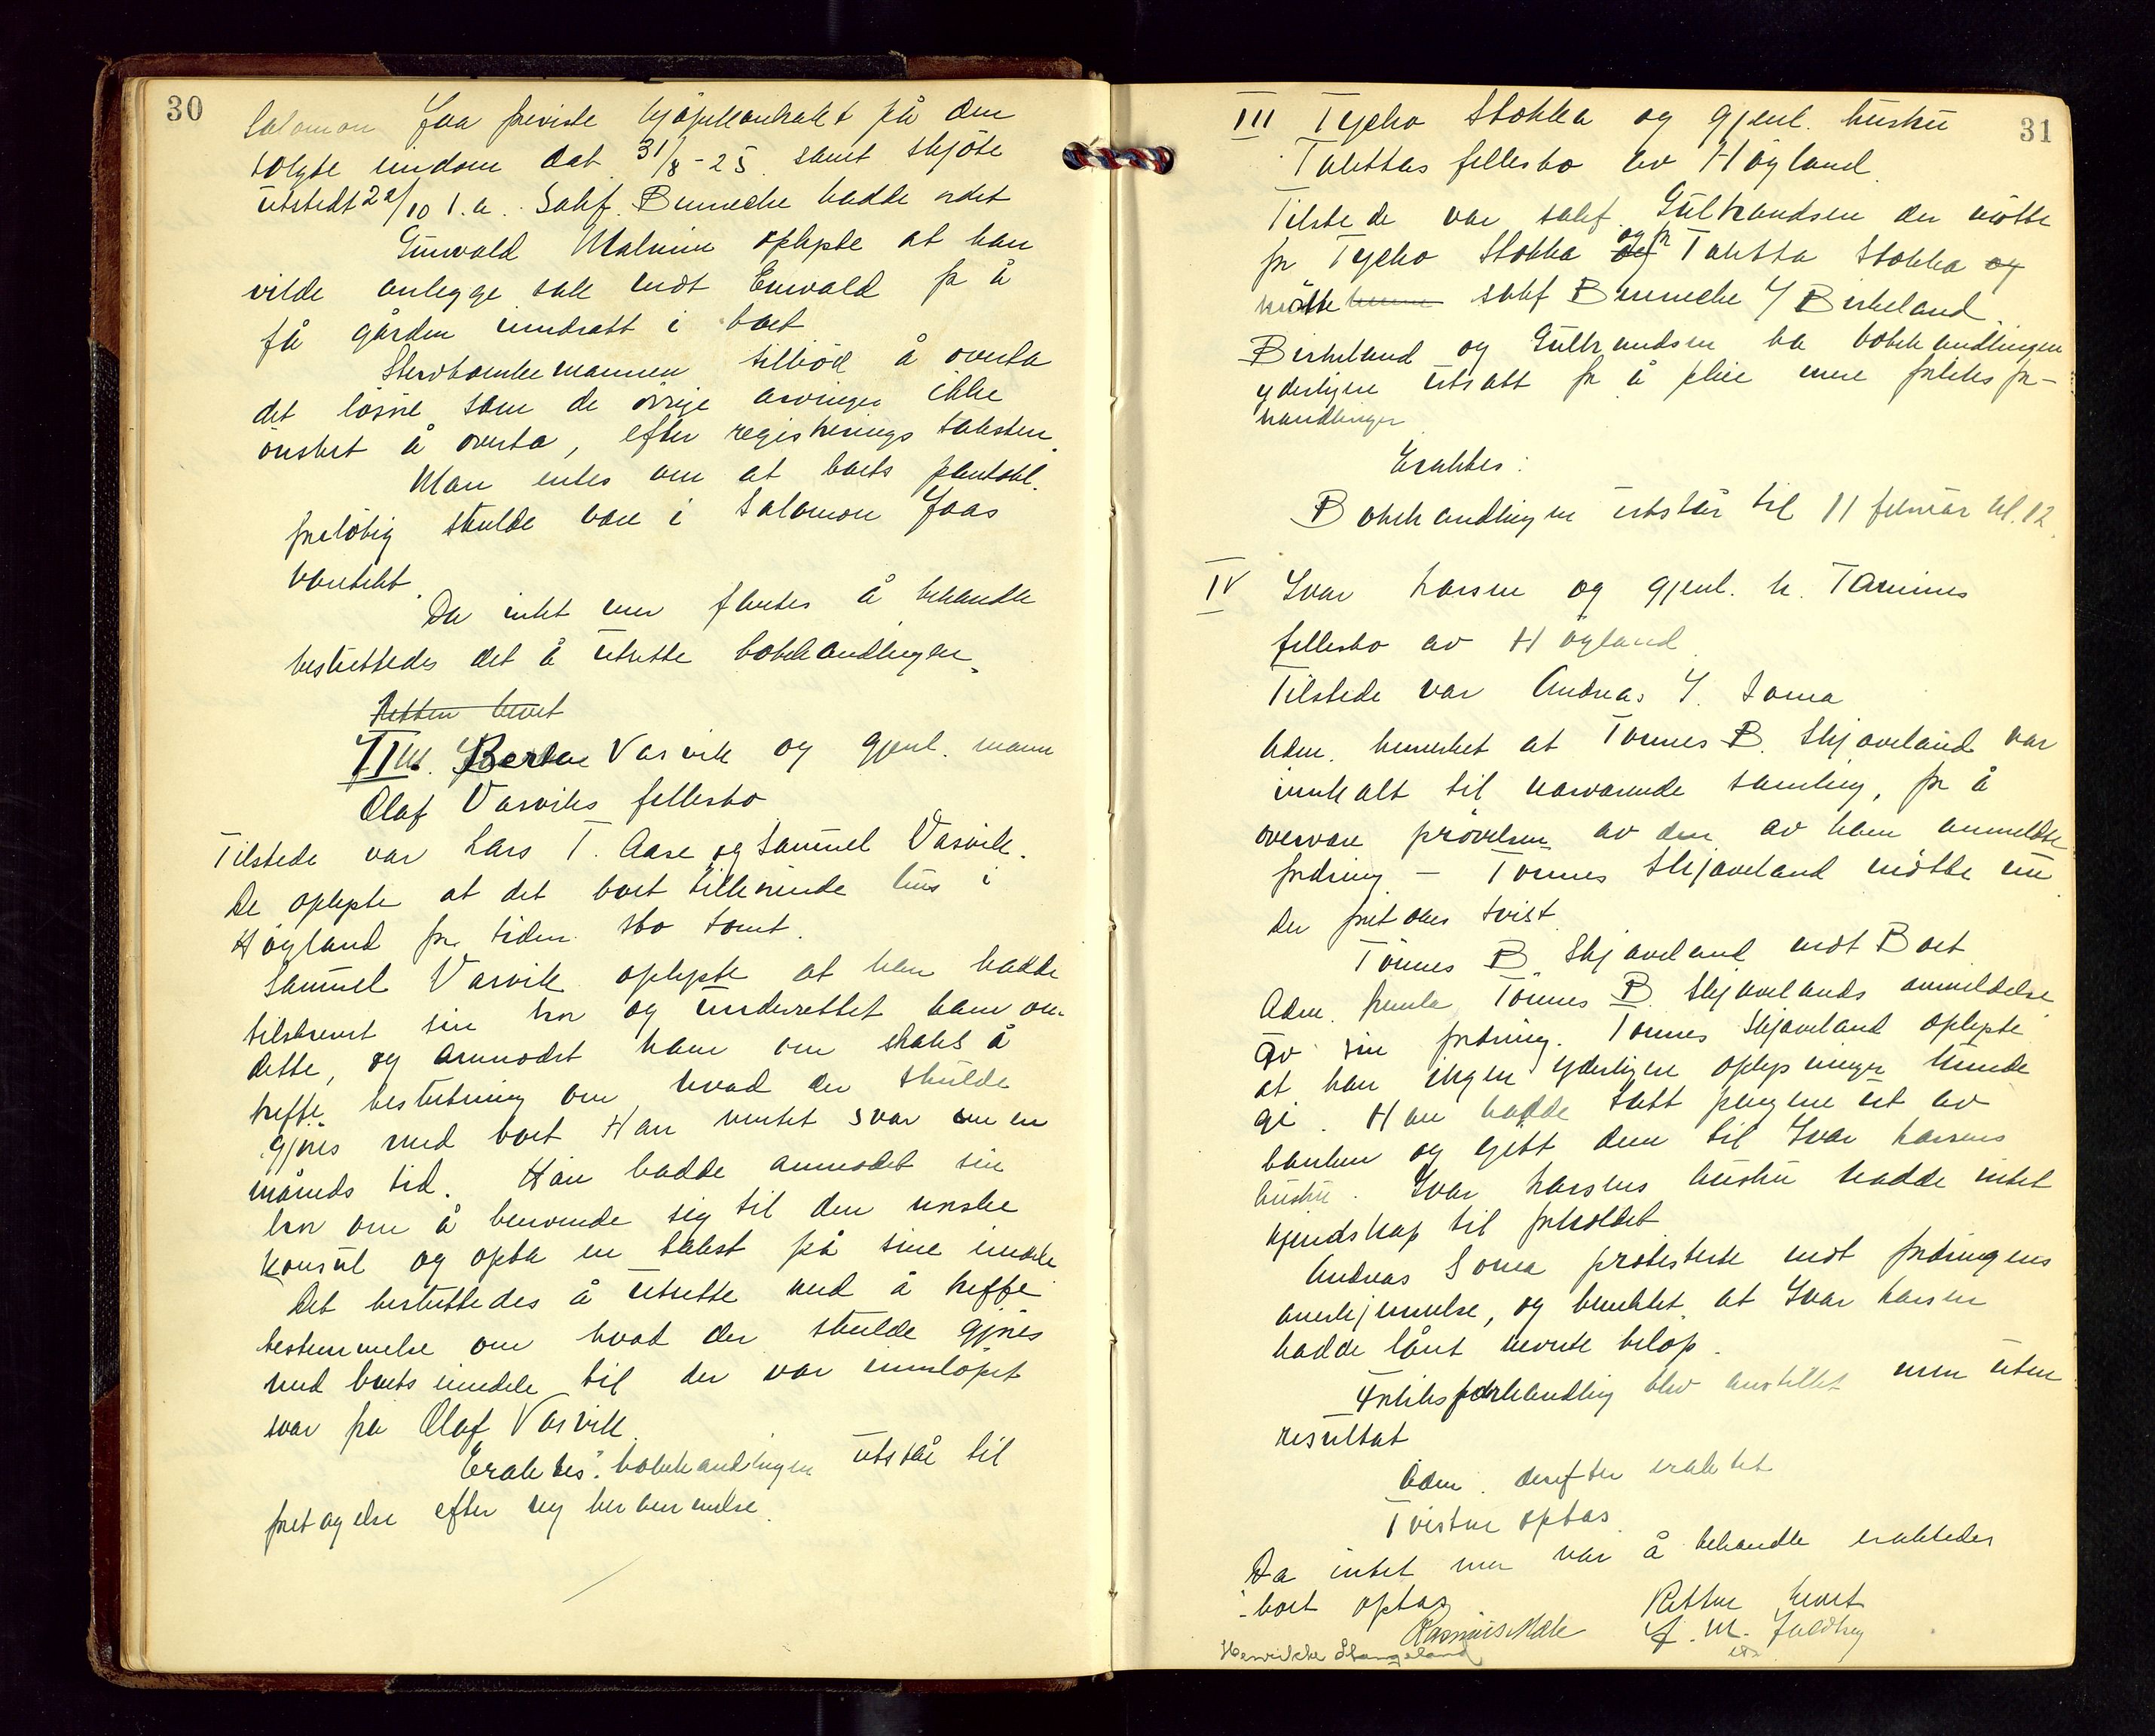 30
Salomon Joa freviste kjøpekontrakt på den
solgte eiendom dat. 31/8-25. samt skjöte
utstedt 22/10 s.a. Sakf. Bennecke hadde
Gunvald Malmin oplyste at han
vilde anlegge sak mot Enevald for å
få gården inndratt i boet
Stervboenkemannen tilböd å overta
det lösöre som de övrige arvinger ikke
önsket å overta, efter registrerings taksten.
Man entes om at boets pantobl.
forelöbig skulde være i Salomon Joas
varetekt.
Da intet mer fantes å behandle
besluttedes det å utsette bobehandlingen.
Retten hevet
II. Berta Varvik og gjenl. mann
Olaf Varviks fellesbo
Tilstede var Lars T. Aase og Samuel Varvik.
De oplyste at det boet tilhörende hus i
Höyland for tiden sto tomt.
Samuel Varvik oplyste at han hadde
tilskrevet sin bror og underrettet ham om
dette, og anmodet ham om straks å
treffe beslutning om hvad der skulde
gjøres med boet Han ventet svar om en
måneds tid. Han hadde anmodet sin
bror om å henvende sig til den norske
konsul og opta en takst på sine
Det besluttedes å utsette med å treffe
bestemmelse om hvad der skulde gjøres
med boets eiendele til der var innlöpet
svar på Olaf Varvik.
Eraktes: bobehandlingen utstår til
foretagelse efter ny berammelse.
31
III Tycho Stokka og gjenl. hustru
Talettas fellesbo av Höyland.
Tilstede var sakf. Gulbrandsen der mötte
for Tycho Stokka og for Taletta Stokka og
mötte sakf Bennecke f/ Birkeland.
Birkeland og Gulbrandsen ba bobehandlingen
yderligere utsatt for å pleie mere forliksfor-
handlinger
Eraktes:
Bobehandlingen utstår til 11 februar kl. 12.
IV Ivar Larsen og gjenl. h. Tarines
fellesbo av Höyland.
Tilstede var Andreas I. Soma
Adm. bemerket at Tönnes B. Skjæveland var
innkalt til nærværende samling, for å
overvære prövelsen av den av ham anmeldte
fordring — Tönnes Skjæveland mötte nu
Der foretokes tvist
Tönnes B. Skjæveland mot Boet.
Adm. fremla Tönnes B. Skjævelands anmeldelse
av sin fordring. Tönnes Skjæveland oplyste
at han ingen yderligere oplysninger kunde
gi. Han hadde tatt pengene ut av
banken og gitt dem til Ivar Larsens
hustru. Ivar Larsens hustru hadde intet
kjendskap til forholdet
Andreas Soma protesterte mot fordringens
anerkjennelse, og benektet at Ivar Larsen
hadde lånt nevnte belöp.
Forliksforhandling blev anstillet men uten
resultat
Adm. derefter eraktet
Tvisten optas.
Da intet mer var å behandle eraktedes
boet optas
Retten hevet
Henrikke Stangeland